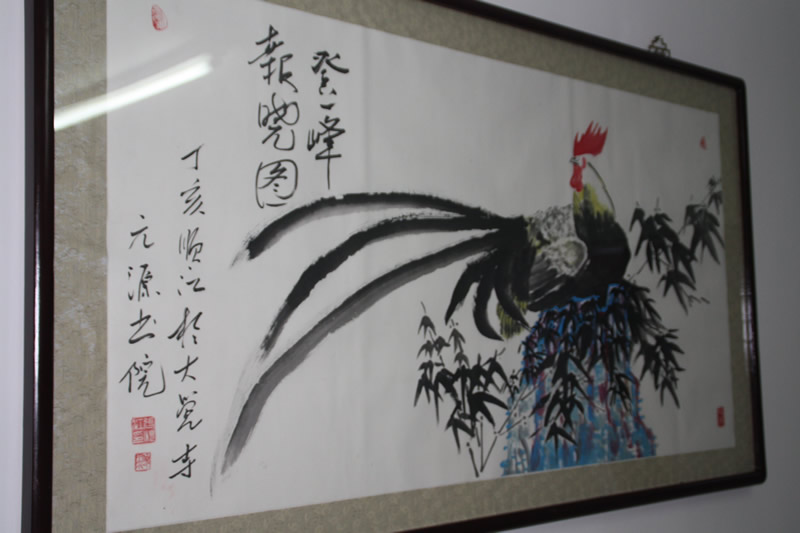 登峰
報晓图
丁亥顺江於大觉寺
元源书院